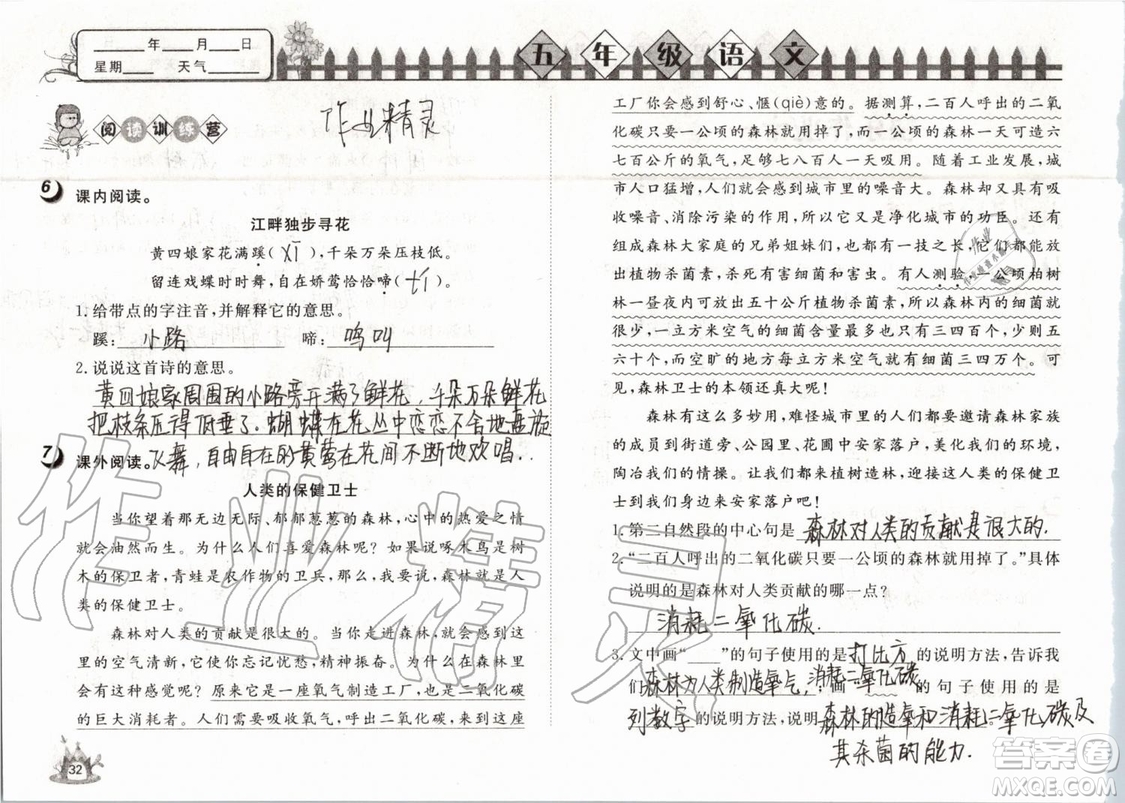 ____年____月____日
星期____ 天气____
五年级语文
阅读训练营
作业精灵
6 课内阅读。
江畔独步寻花
黄四娘家花满蹊（xī），千朵万朵压枝低。
留连戏蝶时时舞，自在娇莺恰恰啼（tí）。
1.给带点的字注音，并解释它的意思。
蹊：小路 啼：鸣叫
2.说说这首诗的意思。
黄四娘家周围的小路旁开满了鲜花，千朵万朵鲜花
把枝条压得低垂了。蝴蝶在花丛中恋恋不舍地盘旋
7 课外阅读。飞舞，自由自在的黄莺在花间不断地欢唱。
人类的保健卫士
当你望着那无边无际、郁郁葱葱的森林，心中的热爱之情
就会油然而生。为什么人们喜爱森林呢？如果说啄木鸟是树
木的保卫者，青蛙是农作物的卫兵，那么我要说，森林就是人类
的保健卫士。
森林对人类的贡献是很大的。当你走进森林，你就会感到这
里的空气清新，它使你忘记忧愁，精神振奋。为什么在森林里会
有这种感觉呢？原来它是一座氧气制造工厂，也是二氧化碳
的巨大消耗者。人们需要吸收氧气，呼出二氧化碳，来到这座
32
工厂你会感到舒心、惬（qiè）意的。据测算，二百人呼出的二氧
化碳只要一公顷的森林就用掉了。而一公顷的森林一天可造六
七百公斤的氧气，足够七八百人一天吸用。随着工业发展，城
市人口猛增，人们都感到城市里的噪音大。森林和草坪都有吸
收噪音、消除污染的作用，所以它又是净化城市的功臣。还有
组成森林大家庭的兄弟姐妹们，它们无论是谁，都能散发一种
植物杀菌素，杀死有害的细菌和害虫。有人测验，一公顷柏树
林一昼夜内可以放出五十公斤植物杀菌素，所以森林内的细菌就
很少，一立方米空气的细菌含量最多也只有三四百个，少的只有
五六十个，而空旷的地方每立方米空气就有细菌三四万个。可
见，森林卫士的本领还真大呢！
森林有这么多妙用，难怪城市里的人们都要邀请森林家族
的成员到街道旁、公园里、花圃中安家落户，美化我们的环境，
陶冶我们的情操。让我们都来植树造林，迎接这人类的保健卫
士到我们身边来安家落户吧！
1.第二自然段的中心句是森林对人类的贡献是很大的.
2.“二百人呼出的二氧化碳只要一公顷的森林就用掉了。”具体
说明的是森林对人类贡献的哪一点？
消耗二氧化碳.
3.文中画“____”的句子使用的是打比方的说明方法，告诉我
们森林为人类制造氧气，消耗二氧化碳。画“____”的句子使用的是
列数字的说明方法，说明森林的造氧和消耗二氧化碳及
其杀菌的能力.
作业精灵
答案圈
MXQE.COM